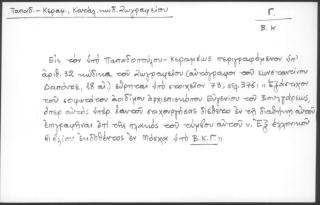 Παπαδ.-Κεραμ., Κατάλ. κωδ. Ζωγραφείου
Γ.
Β. Κ
Εἰς τὸν ὑπὸ Παπαδοπούλου-Κεραμέως περιγραφόμενον ὑπ'
ἀριθ. 32 κώδικα τοῦ Ζωγραφείου (αὐτόγραφον τοῦ Κωνσταντίνου
Δαπόντε, 18 αἰ.) εὕρηται ὑπὸ στοιχεῖον 73, σελ. 376:
τοῦ ἀοιδίμου ἀρχιεπισκόπου Εὐγενίου τοῦ Βουλγάρεως,
ὅπερ αὐτὸς ὑπὲρ ἑαυτοῦ στιχουργήσας διέθετο ἐν τῇ διαθήκῃ αὐτοῦ
ἐπιγραφῆναι ἐπὶ τῆς πλακὸς τοῦ τύμβου αὐτοῦ". Ἐξ ἑλληνικοῦ
ἐκδοθέντος ἐν Μόσχᾳ ὑπὸ Β.Κ.Γ."